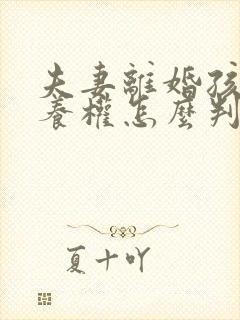 夫妻離婚孩
養權怎麼判
夏十吖